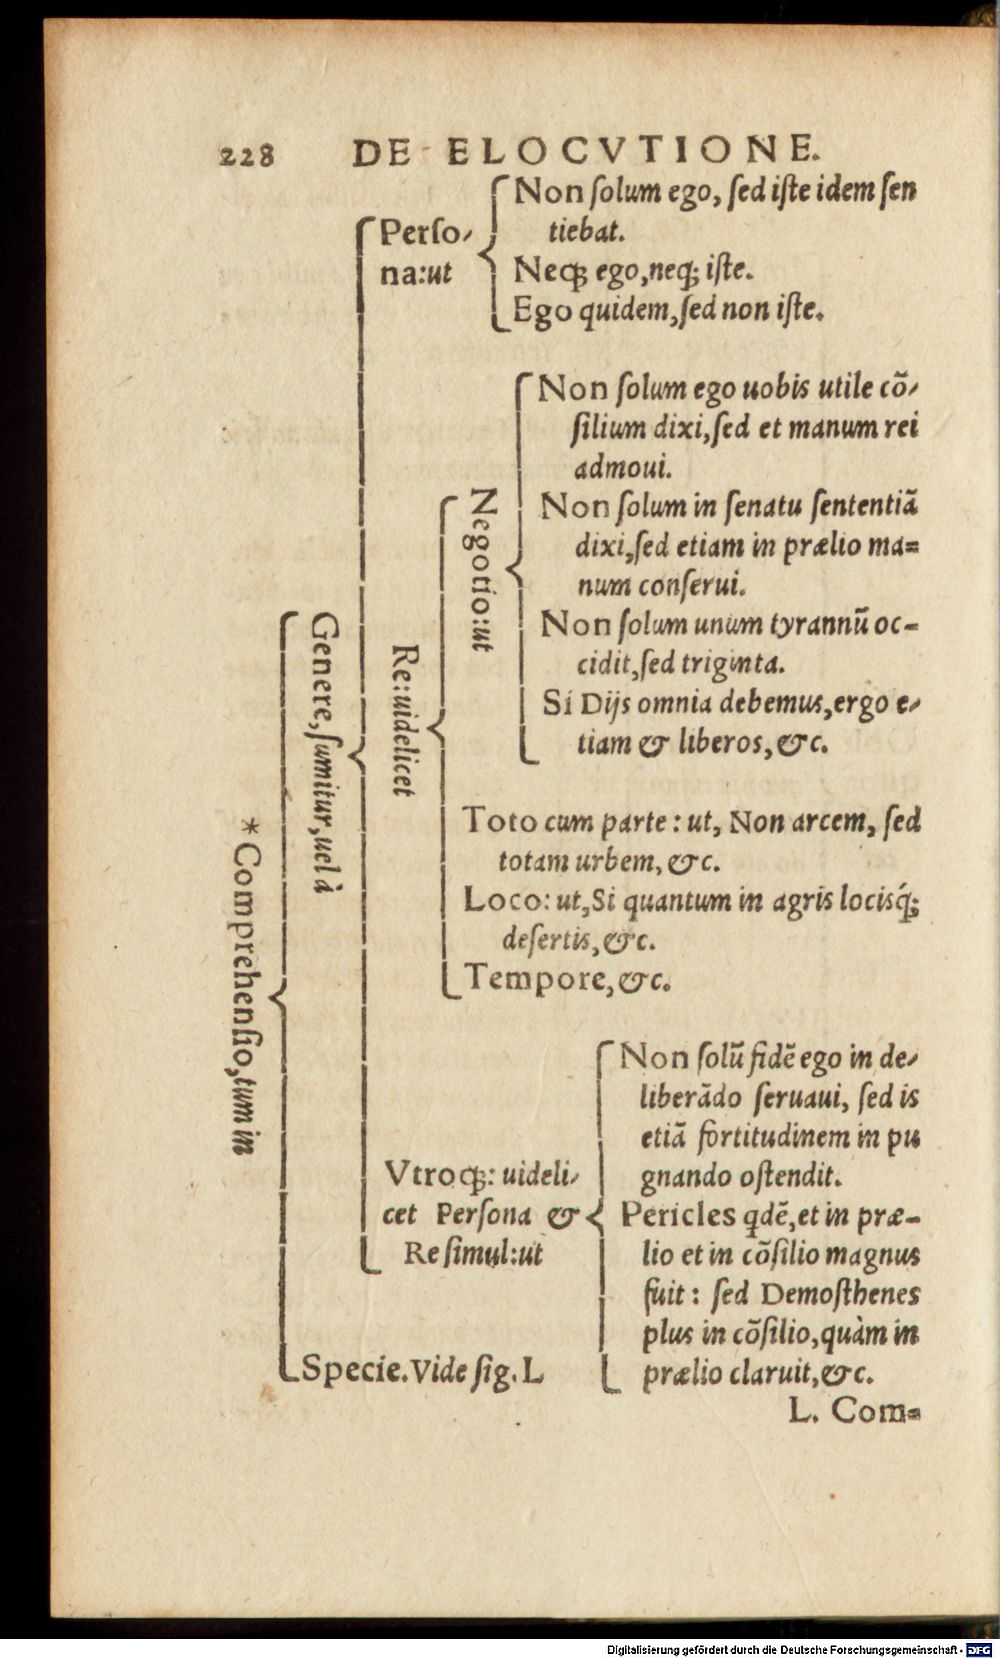 228 DE ELOCVTIONE.
* Comprehensio, tum in
Genere, sumitur, uel à
Perso-
na: ut
Non solum ego, sed iste idem sen
tiebat.
Neq; ego, neq; iste.
Ego quidem, sed non iste.
Re: uidelicet
Negotio: ut
Non solum ego uobis utile cō-
silium dixi, sed et manum rei
admoui.
Non solum in senatu sententiā
dixi, sed etiam in prælio ma=
num conserui.
Non solum unum tyrannū oc-
cidit, sed triginta.
Si Dijs omnia debemus, ergo e-
tiam & liberos, &c.
Toto cum parte: ut, Non arcem, sed
totam urbem, &c.
Loco: ut, Si quantum in agris locisq́;
desertis, &c.
Tempore, &c.
Vtroq;: uideli-
cet Persona &
Re simul: ut
Non solū fidē ego in de-
liberādo seruaui, sed is
etiā fortitudinem in pu
gnando ostendit.
Pericles qdē, et in præ-
lio et in cōsilio magnus
fuit: sed Demosthenes
plus in cōsilio, quàm in
prælio claruit, &c.
Specie. Vide sig. L
L. Com=
Digitalisierung gefördert durch die Deutsche Forschungsgemeinschaft - DFG